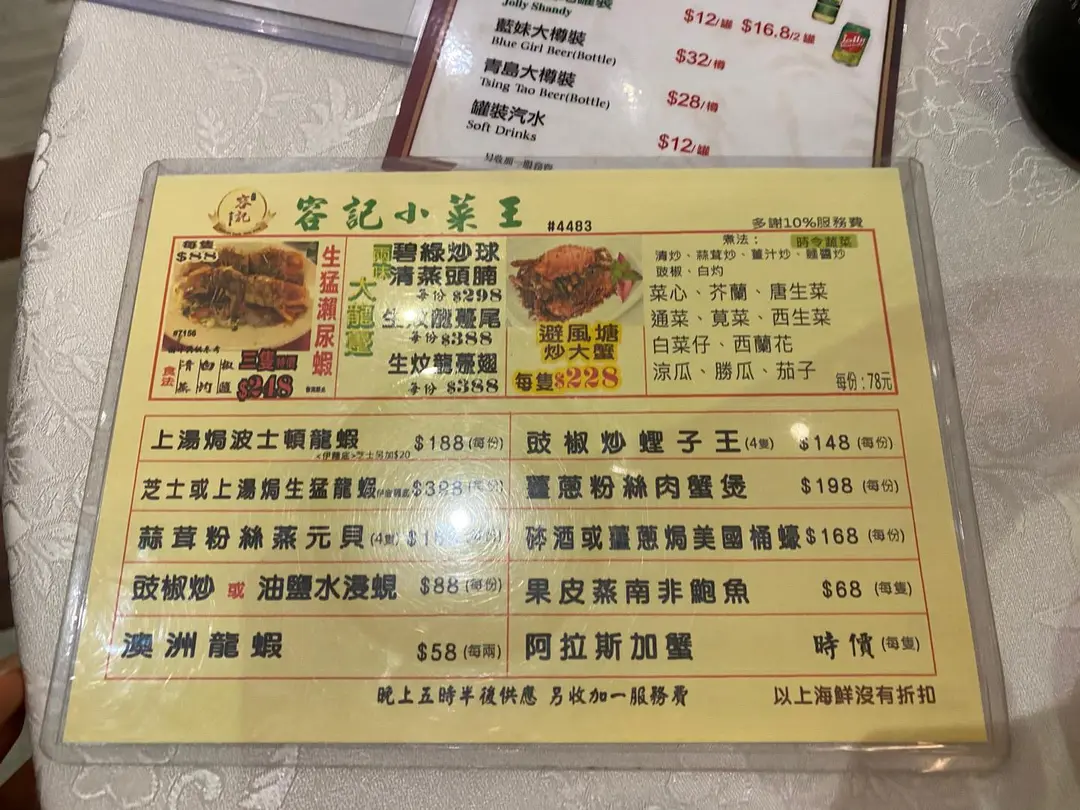 Jolly Shandy
$12/罐 $16.8/2罐
藍妹大樽裝
Blue Girl Beer(Bottle)
$32/樽
青島大樽裝
Tsing Tao Beer(Bottle)
$28/樽
罐裝汽水
Soft Drinks
$12/罐
容記
容記小菜王
#4483
多謝10%服務費
每隻
生猛瀨尿蝦
#7156
食法
三隻
$248
大龍躉
碧綠炒球
清蒸頭腩
每份 $298
生炆龍躉尾
每份 $388
生炆龍躉翅
每份 $388
避風塘
炒大蟹
每隻$228
煮法：
時令蔬菜
清炒、蒜茸炒、薑汁炒、
豉椒、白灼
菜心、芥蘭、唐生菜
通菜、莧菜、西生菜
白菜仔、西蘭花
涼瓜、勝瓜、茄子
每份：78元
上湯焗波士頓龍蝦 $188 (每份)
<伊麵底>芝士另加$20
豉椒炒蟶子王(4隻) $148 (每份)
芝士或上湯焗生猛龍蝦 $398 (每份)
薑蔥粉絲肉蟹煲 $198 (每份)
蒜茸粉絲蒸元貝(4隻) (每份)
砵酒或薑蔥焗美國桶蠔 $168 (每份)
豉椒炒 或 油鹽水浸蜆 $88 (每份)
果皮蒸南非鮑魚 $68 (每隻)
澳洲龍蝦 $58 (每兩)
阿拉斯加蟹 時價 (每隻)
晚上五時半後供應 另收加一服務費
以上海鮮沒有折扣